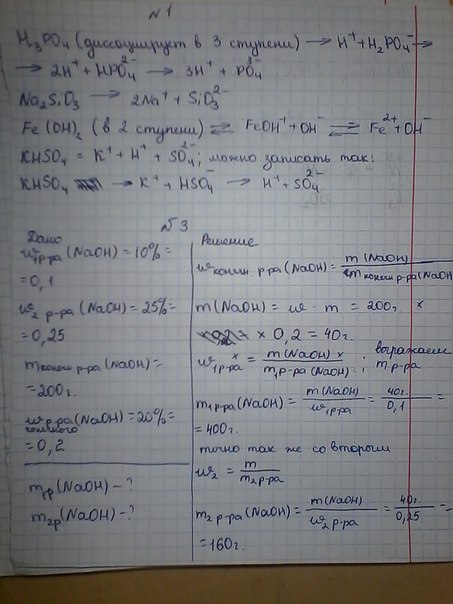 №1
H₃PO₄ (диссоциирует в 3 ступени) → H⁺ + H₂PO₄⁻ →
→ 2H⁺ + HPO₄²⁻ → 3H⁺ + PO₄³⁻
Na₂SiO₃ → 2Na⁺ + SiO₃²⁻
Fe(OH)₂ (в 2 ступени) ⇌ FeOH⁺ + OH⁻ ⇌ Fe²⁺ + OH⁻
KHSO₄ = K⁺ + H⁺ + SO₄²⁻; можно записать так:
KHSO₄ → K⁺ + HSO₄⁻ → H⁺ + SO₄²⁻
№3
Дано
w₁р-ра (NaOH) = 10% =
= 0,1
w₂ р-ра (NaOH) = 25% =
= 0,25
m конечн р-ра (NaOH) =
= 200г.
w р-ра (NaOH) = 20% =
конечного
= 0,2
m₁р (NaOH) - ?
m₂р (NaOH) - ?
Решение
w конечн. р-ра (NaOH) = m (NaOH) / m конечн р-ра (NaOH
m (NaOH) = w · m = 200г. ×
× 0,2 = 40г.
w₁р-ра = m(NaOH) / m₁р-ра (NaOH) ; выражаем
m р-ра
m₁р-ра (NaOH) = m(NaOH) / w₁р-ра = 40г. / 0,1 =
= 400г.
точно так же со вторым
w₂ = m / m₂р-ра
m₂ р-ра (NaOH) = m(NaOH) / w₂ р-ра = 40г. / 0,25 =
= 160г.